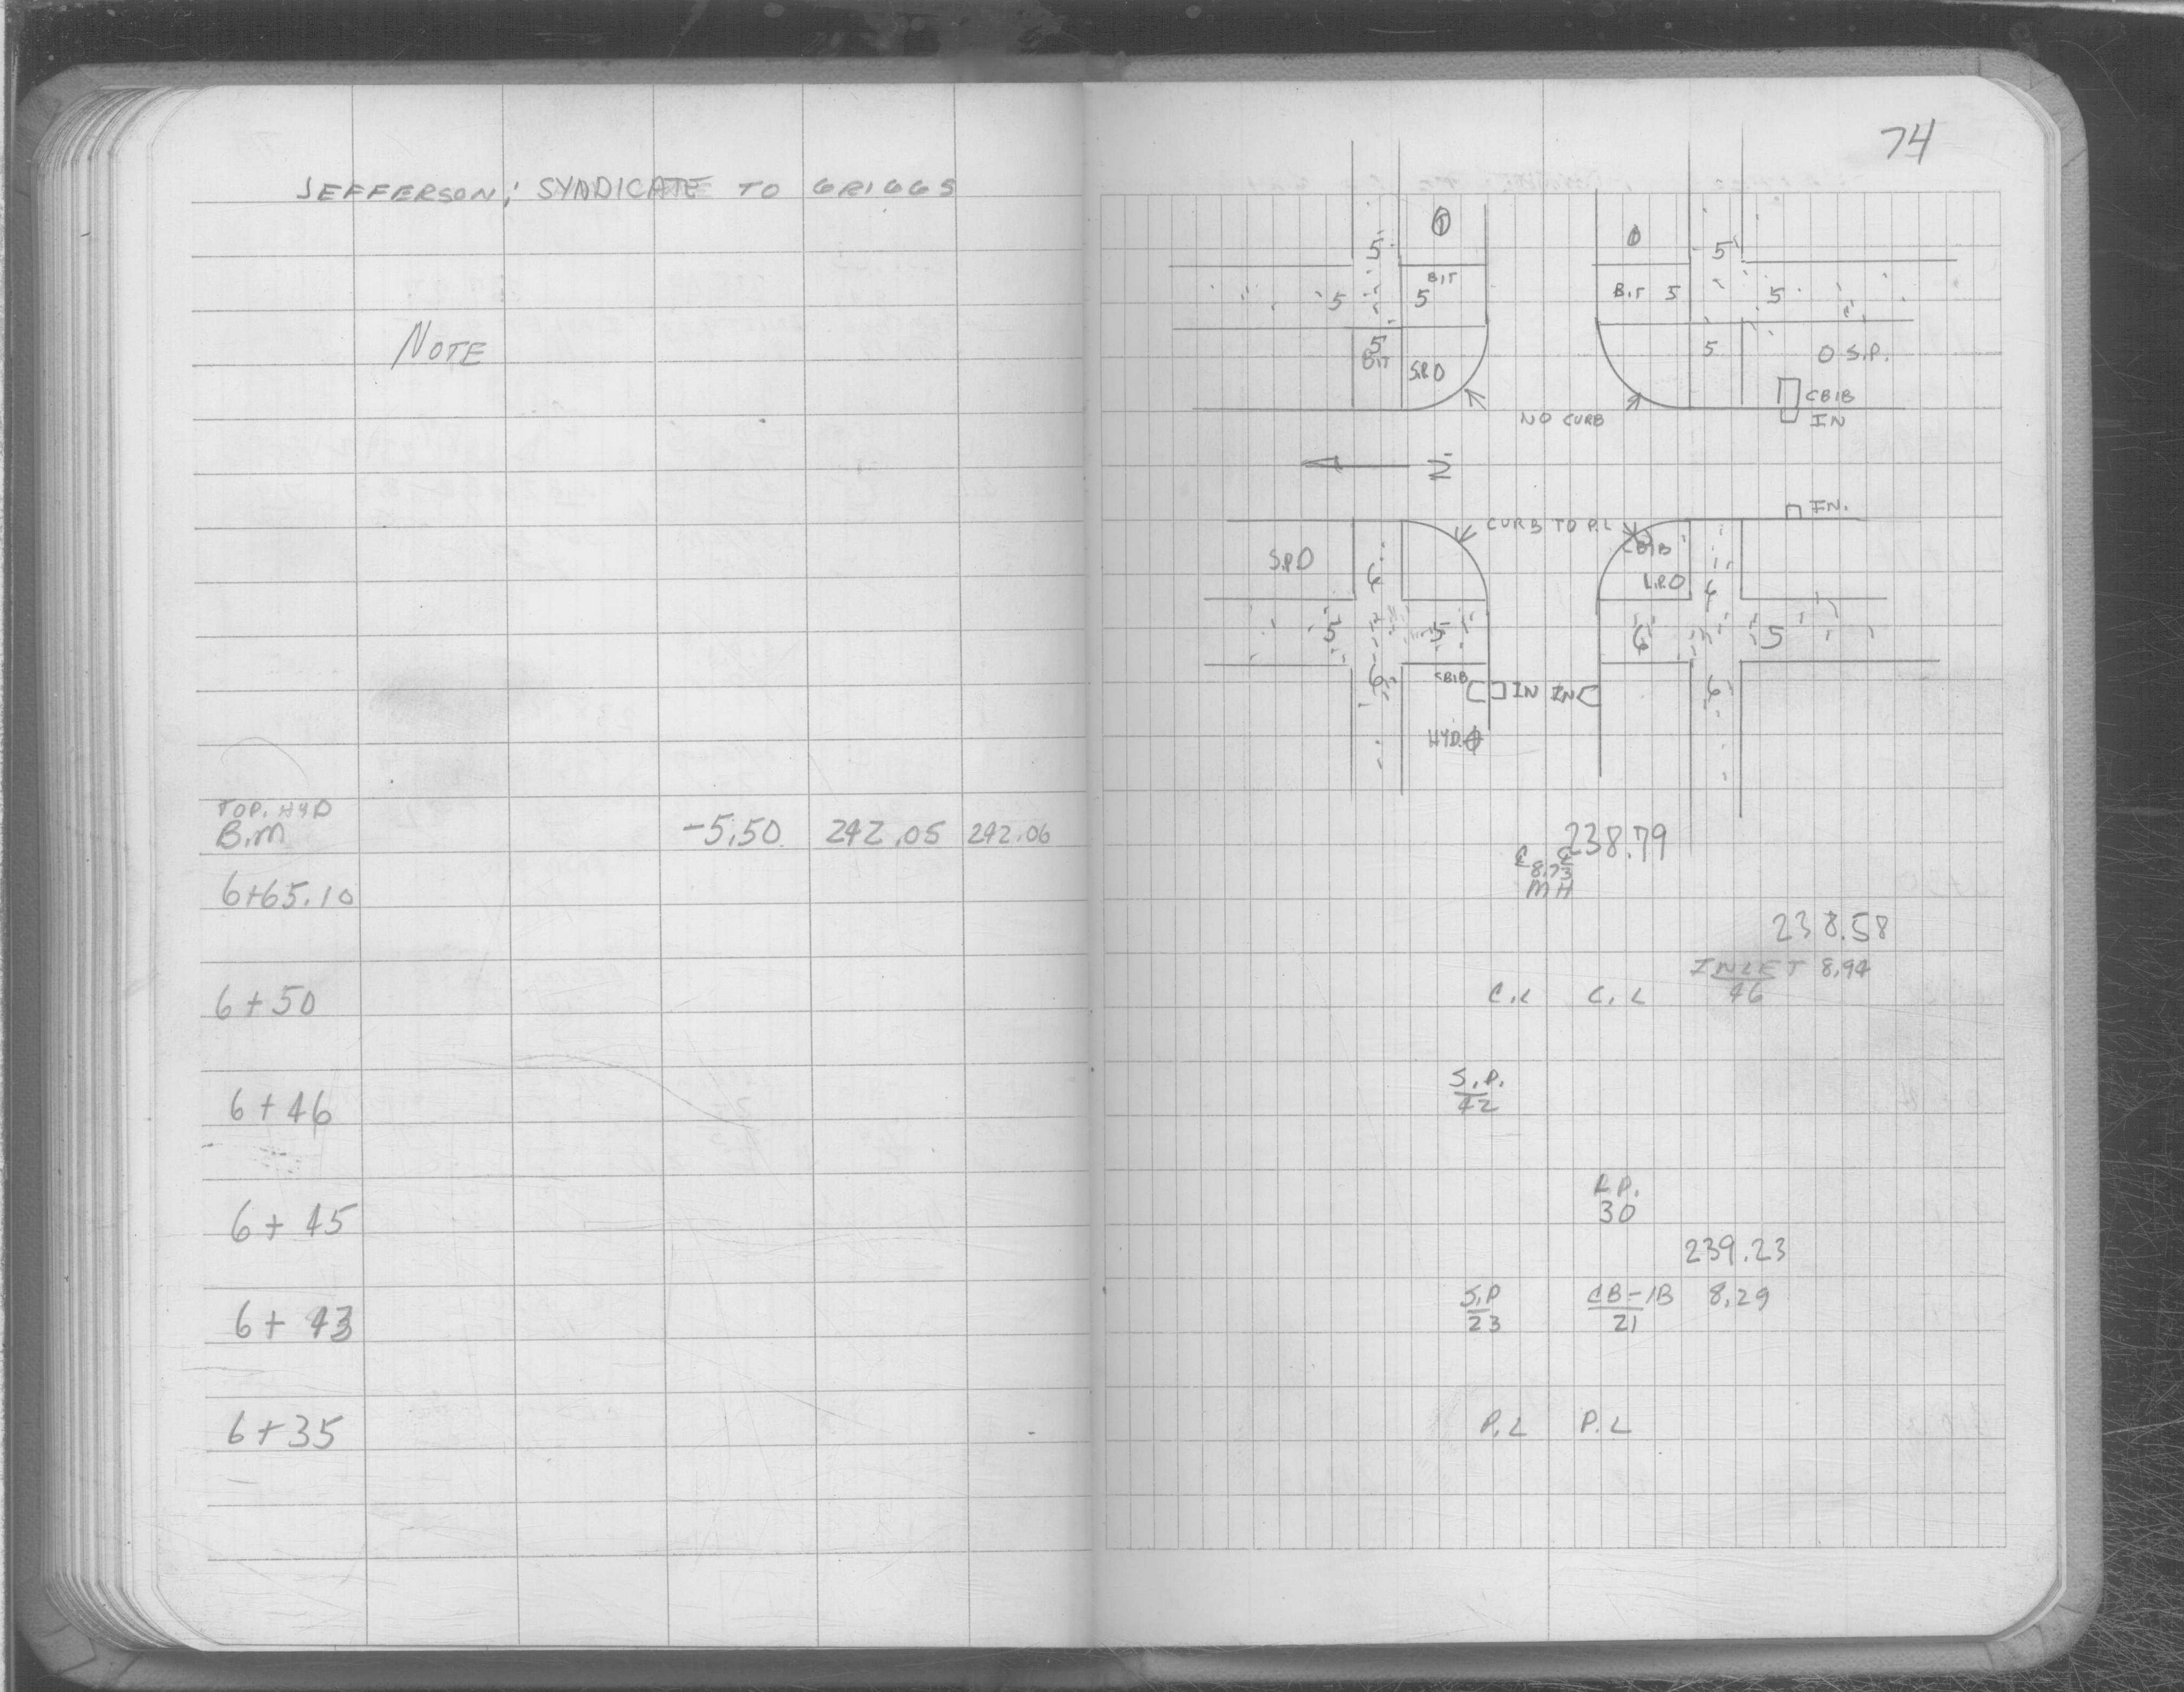 JEFFERSON; SYNDICATE TO GRIGGS
NOTE
TOP. HYD
B.M -5.50 242.05 242.06
6+65.10
6+50
6+46
6+45
6+43
6+35
74
5 5
BIT
5 5 BIT 5 5
5
BIT S.P.O 5 O S.P.
CBIB
NO CURB IN
N
IN.
CURB TO P.L
CBIB
S.P.O 6 L.P.O 6
5 5 6 5
6 CBIB IN IN 6
HYD.
238.79
℄ ℄
8.73
MH
238.58
INLET 8.94
46
C.L C.L
S.P.
42
L.P.
30
239.23
S.P CB-1B 8.29
23 21
P.L P.L